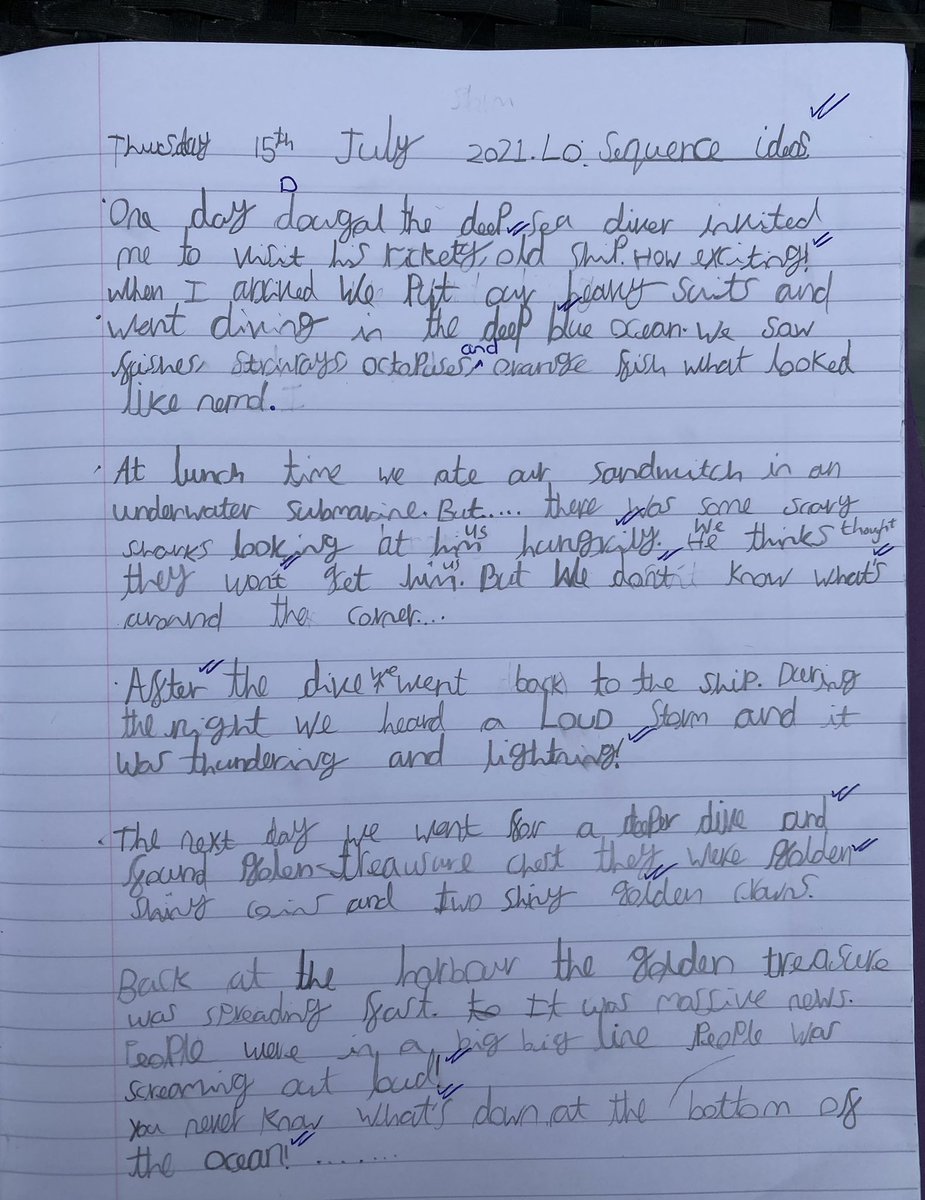 Thursday 15th July 2021. LO: Sequence ideas.
D
One day dougal the deep sea diver invited
me to visit his rickety, old ship. How exciting!
When I arrived We Put our heavy suits and
went diving in the deep blue ocean. We saw
and
fishes, stinrays, octopuses, orange fish what looked
like nemo.
At lunch time we ate our sandwitch in an
underwater submarine. But.... there was some scary
us We thought
sharks looking at him hungrily. He thinks
us
they won't get him. But We don't know what's
around the corner....
we
After the dive went back to the ship. During
the night we heard a LOUD storm and it
was thundering and lightning!
The next day we went for a deeper dive and
found golen-treausure chest they weke golden
shiny coins and two shiny golden clowns.
Back at the harbour the golden treasure
was spreading fast. to It was massive news.
People were in a big big line People was
screaming out loud!
you never know what's down at the bottom of
the ocean! ........